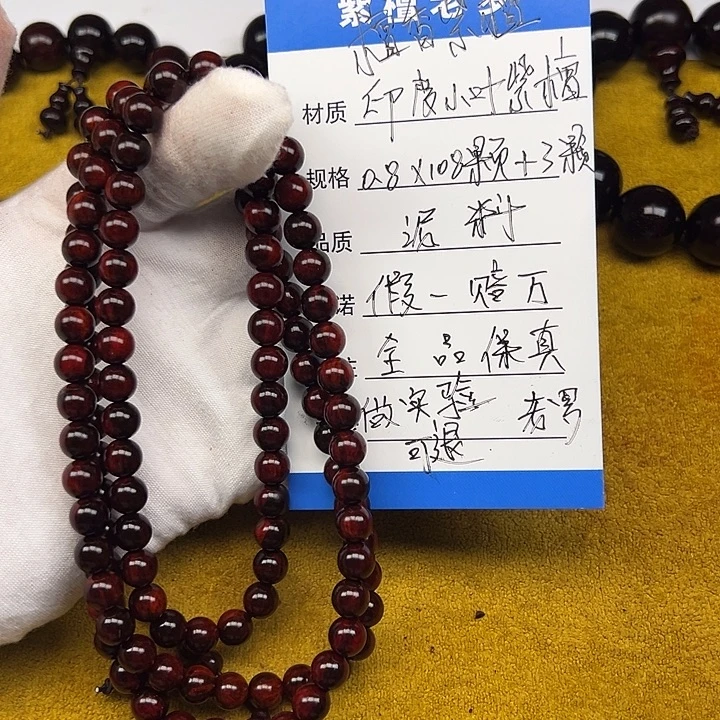 紫檀老
材质 印度小叶紫檀
规格 0.8×108颗+3颗
品质 泥料
诺 假一赔万
全品保真
做实验 老男
可退